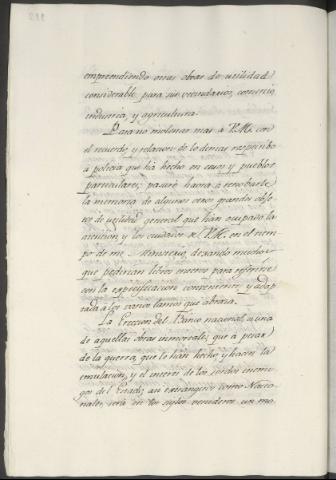 emprendiendo otras obras de utilidad
considerable para sus vecindarios, comercio
industria, y agricultura.
Para no molestar mas a V.M. con
el recuerdo, y relacion de lo demas respectivo
a policia que ha hecho en casos y pueblos
particulares; pasaré ahora à renovarle
la memoria de algunos otros grandes obje-
tos de utilidad general que han ocupado la
atencion y los cuidados de V.M. en el tiem-
po de mi Ministerio, dexando muchos
que pedirian libros enteros para referirse
con la especificacion conveniente, y adap-
tada à los varios ramos que abraza.
La Ereccion del Banco nacional es una
de aquellas obras inmortales que à pesar
de la guerra, que le han hecho y hacen la
emulacion, y el interes de los sordos enemi-
gos del Estado, asi extrangeros como Nacio-
nales, será en los siglos venideros un mo-